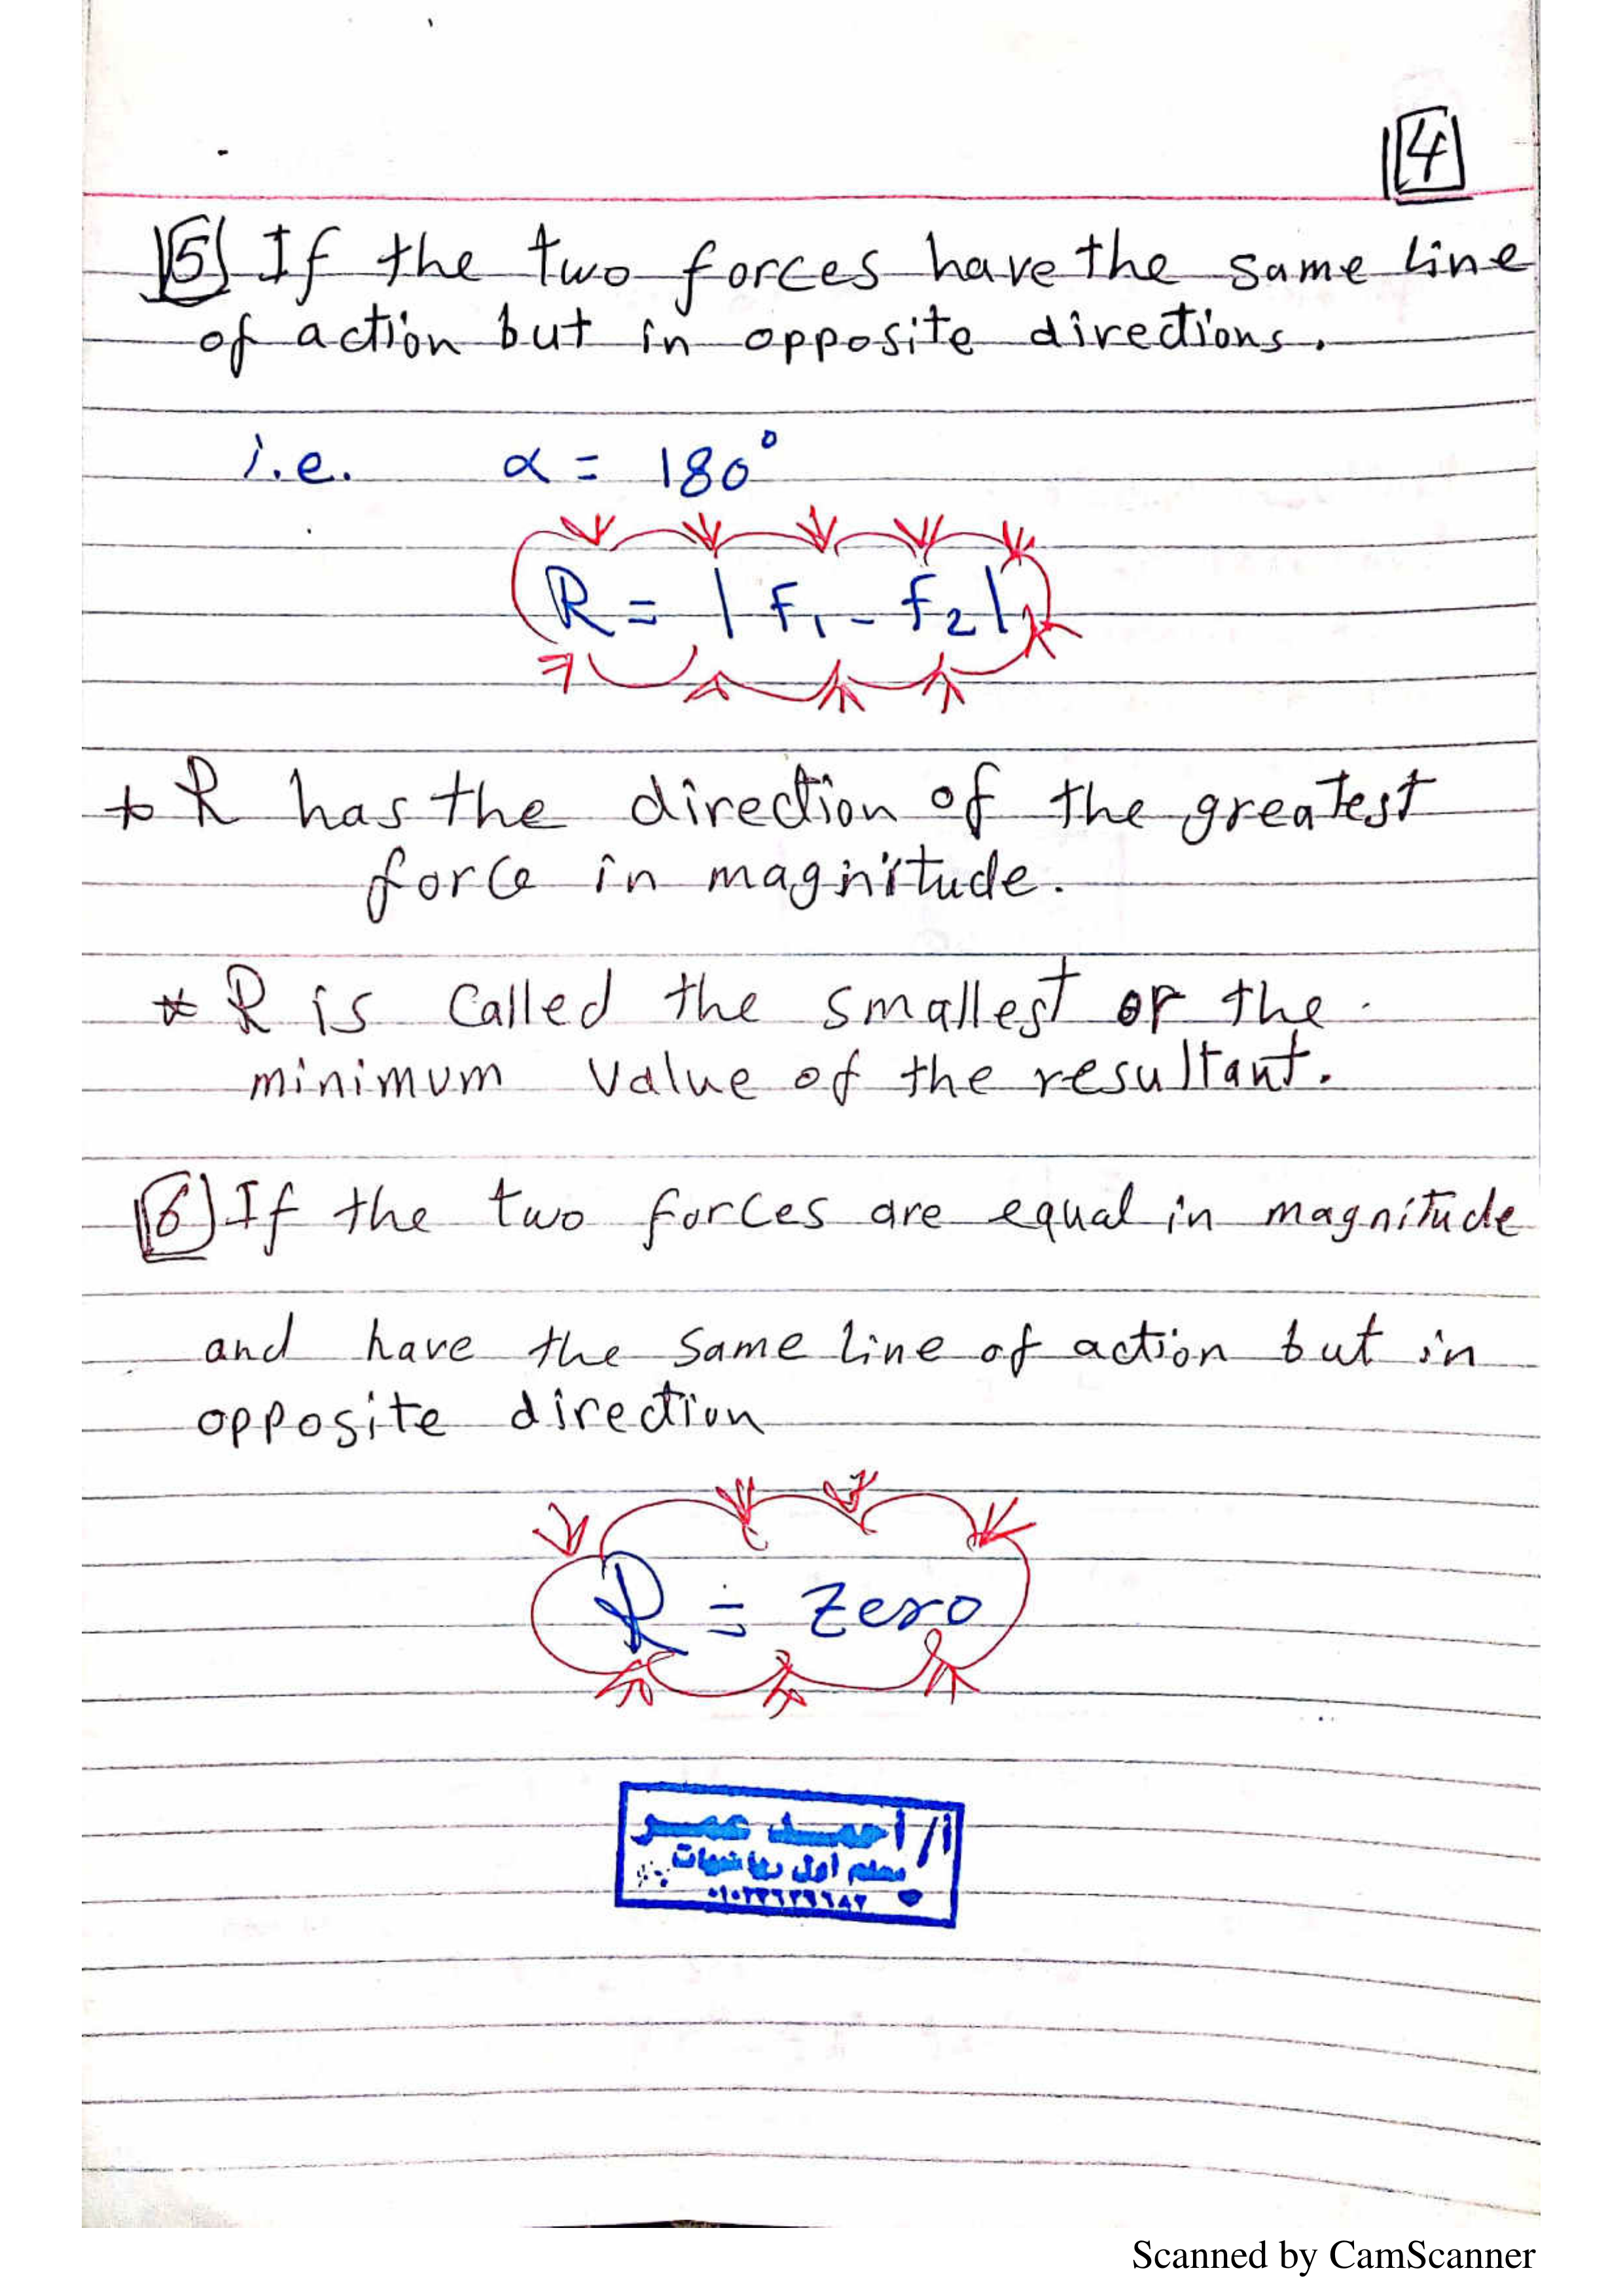 4
5 If the two forces have the same line
of action but in opposite directions.
i.e. α = 180°
R = | F₁ - F₂ |
* R has the direction of the greatest
force in magnitude.
* R is called the smallest or the
minimum value of the resultant.
6 If the two forces are equal in magnitude
and have the same line of action but in
opposite direction
R = Zero
أ/ أحمد عمر
معلم أول رياضيات
Scanned by CamScanner